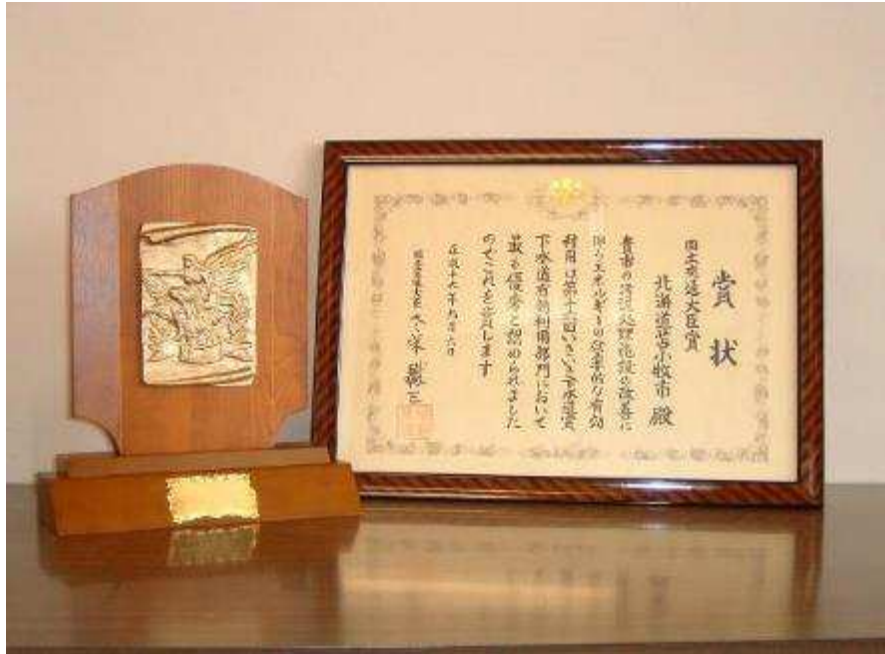 賞状
国土交通大臣賞
北海道苫小牧市 殿
貴市の汚泥処理施設の改善に
伴うエネルギーの効率的な有効
利用は第十三回いきいき下水道賞
下水道有効利用部門において
最も優秀と認められました
のでこれを賞します
平成十六年九月六日
国土交通大臣